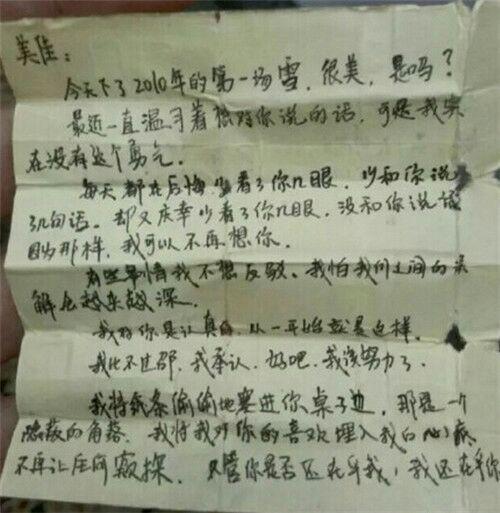 美佳：
今天下了2010年的第一场雪，很美，是吗？
最近一直温习着想对你说的话，可是我实
在没有这个勇气。
每天都在后悔少看了你几眼，少和你说
了几句话。却又庆幸少看了你几眼，没和你说话
因为那样，我可以不再想你。
有些事情我不想反驳，我怕我们之间的误
解会越来越深。
我对你是认真的，从一开始就是这样。
我比不过邵，我承认，好吧，我该努力了。
我将纸条偷偷地塞进你桌子边，那是一个
隐蔽的角落，我将我对你的喜欢埋入我的心底，
不再让任何窥探。只管你是否还在乎我，我还在乎你